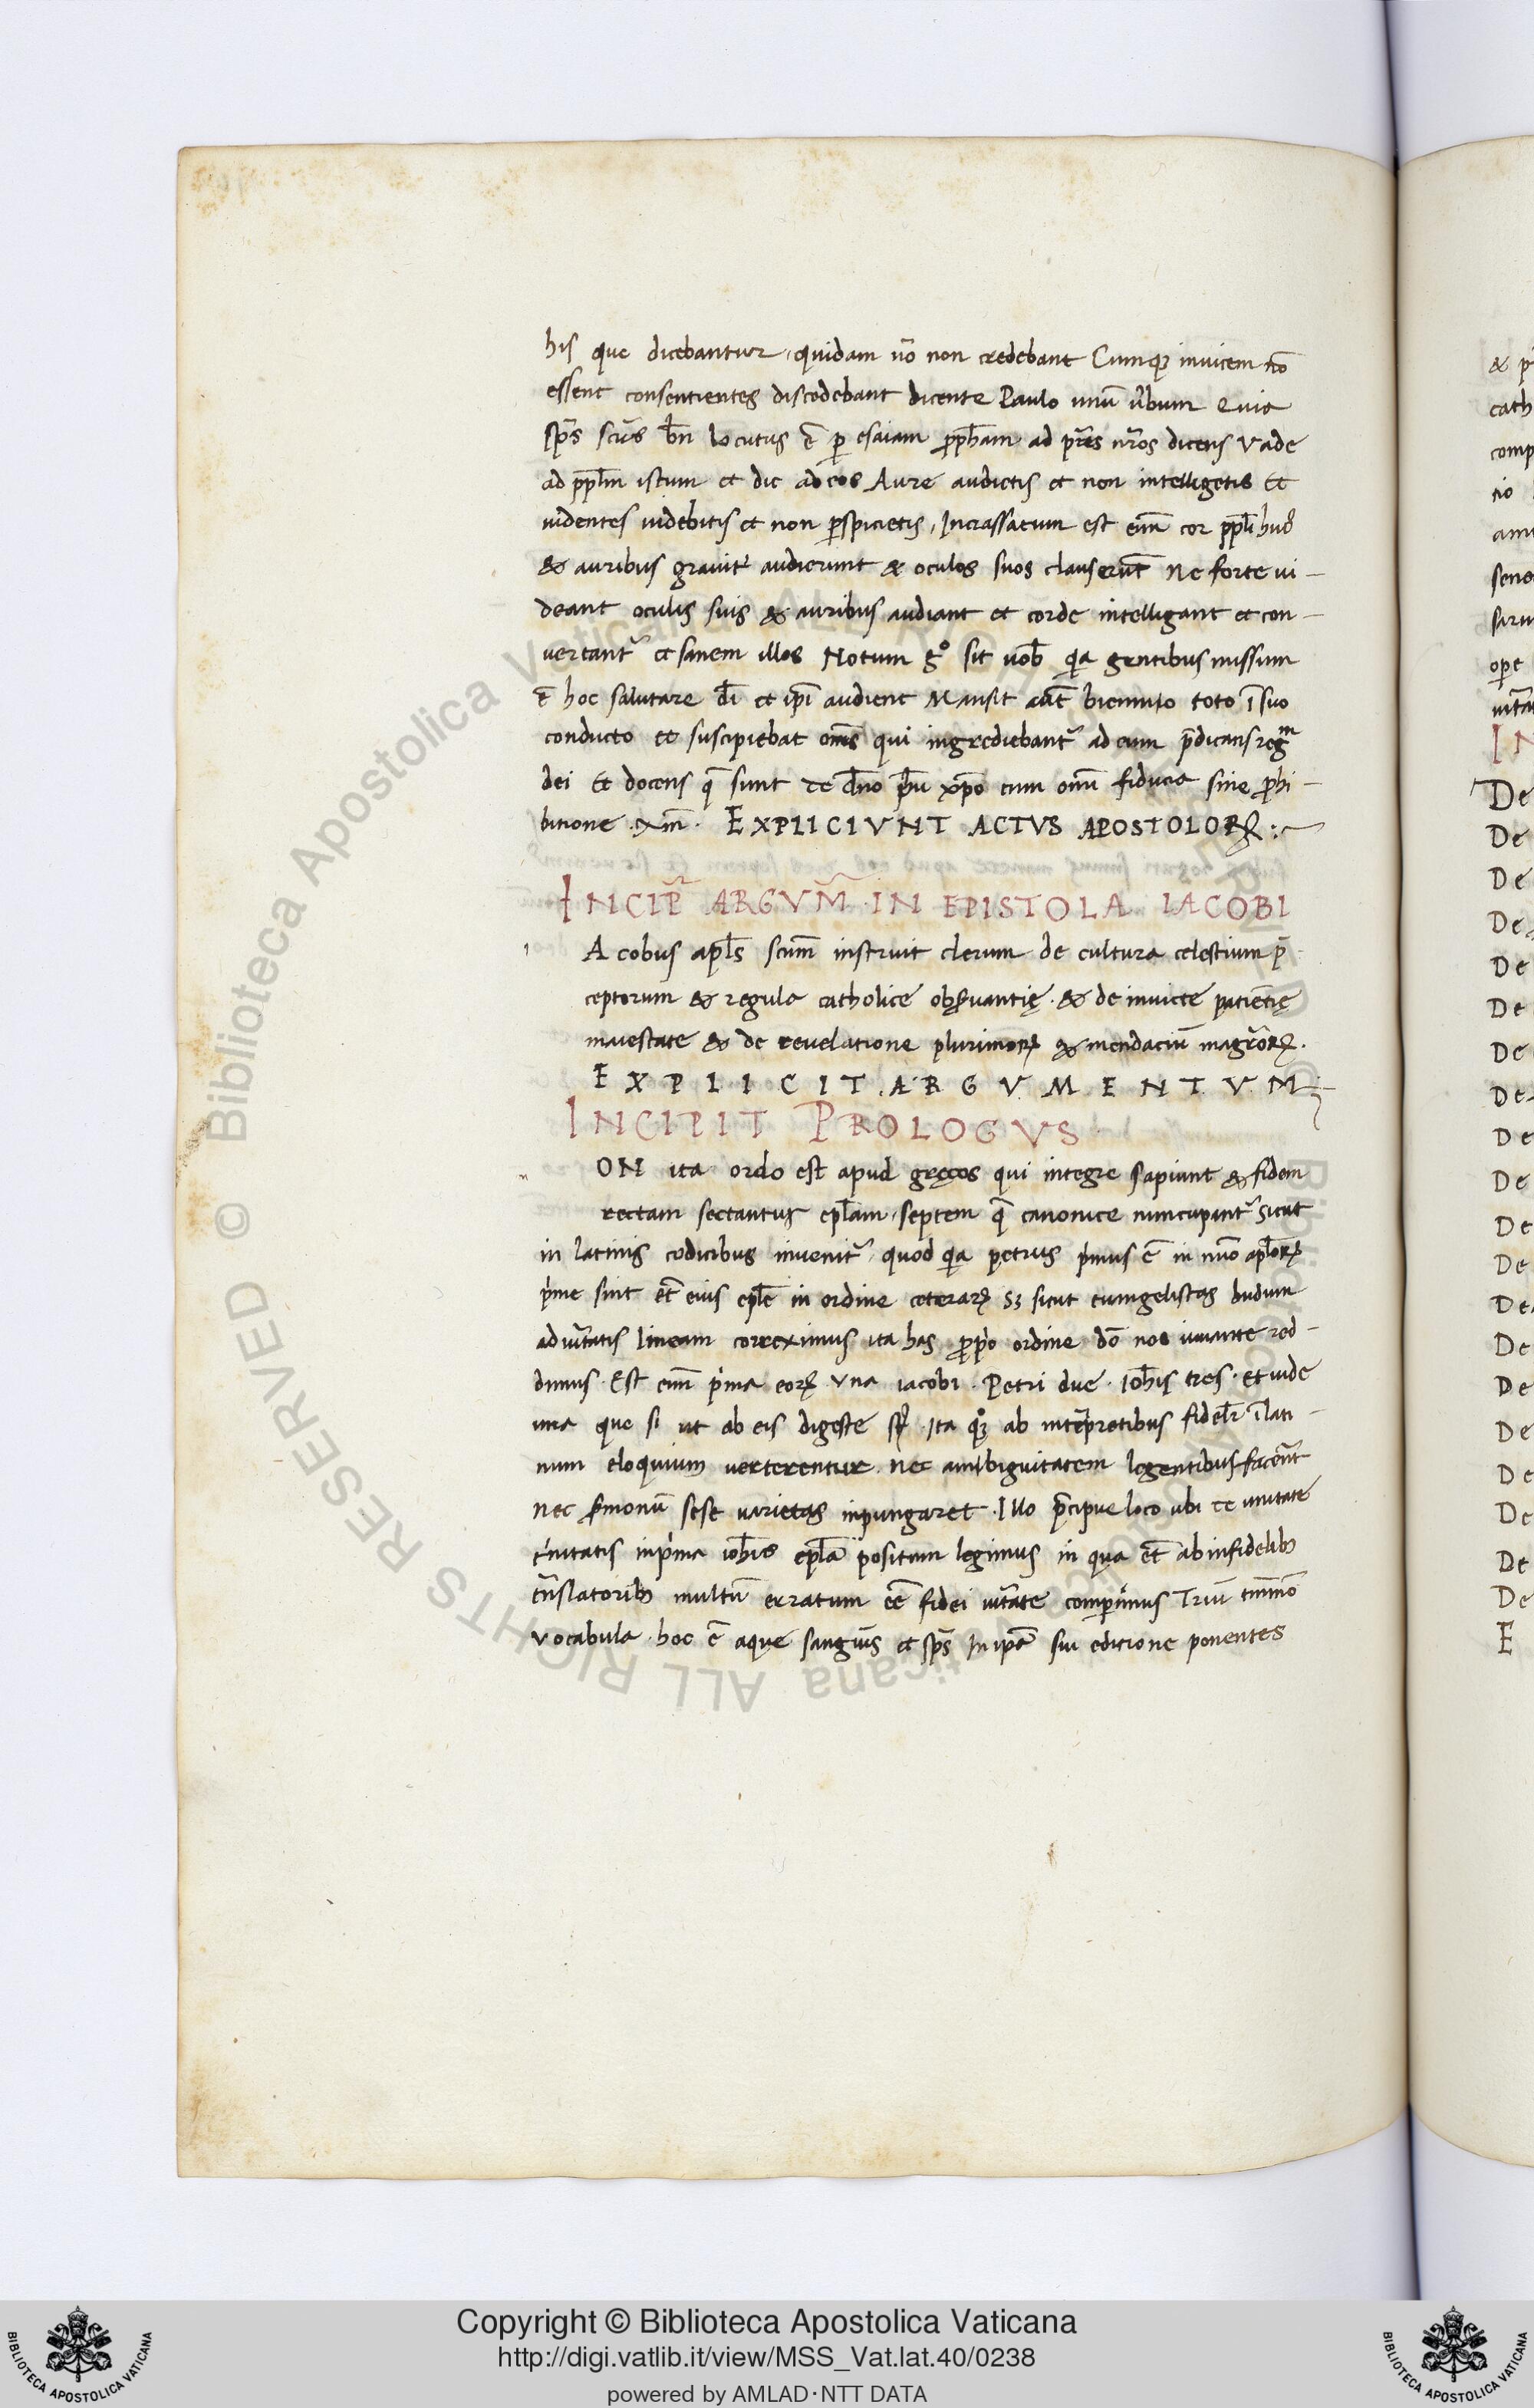 his que dicebantur, quidam uo̅ non credebant Cumq; inuicem no̅
essent consentientes discedebant dicente Paulo unu̅ u̅bum Quia
sp̅s sc̅us bn̅ locutus e̅ ꝑ esaiam ꝓph̅am ad pr̅es nr̅os dicens Vade
ad ppl̅m istum et dic ad eos Aure audietis et non intelligetis Et
uidentes uidebitis et non ꝑspicietis, Incrassatum est eni̅m cor ppl̅i hui᾿
& auribus grauit᾿ audierunt & oculos suos clauseru̅t Ne forte ui-
deant oculis suis & auribus audiant et corde intelligant et con-
uertant᾿ et sanem illos Notum gͦ sit uob̅ qia gentibus missum
e̅ hoc salutare di̅ et ip̅i audient Mansit aut̅ biennio toto i̅ suo
conducto et suscipiebat om̅s qui ingrediebant᾿ ad eum p̅dicans regᵐ
dei Et docens q̅ sunt de dn̅o ih̅u xp̅o cum omni̅ fiducia sine ꝓhi-
bitione . am̅ . EXPLICIUNT ACTVS APOSTOLOꝜ :~
INCIP̅ ARGVM̅ IN EPISTOLA IACOBI
i
Acobus apl̅s scu̅m instruit clerum de cultura celestium p̅-
ceptorum & regula catholice obẜuantię . & de inuicte patientię
maiestate & de reuelatione plurimoꝝ & mendaciu̅ magr̅oꝝ.
EXPLICIT . ARGVMENTVM
INCIPIT PROLOGVS
n
ON ita ordo est apud gręcos qui integre sapiunt & fidem
rectam sectantur epl̅am, septem q̅ canonice nuncupant᾿ Sicut
in latinis codicibus inuenit᾿ quod qia petrus pimus e̅ in nu̅o apl̅oꝝ
pime sint et̅ eius epl̅e in ordine ceteraꝝ Sꝫ sicut euangelistas dudum
ad uı̅tatis lineam correximus ita has ꝓpio ordine do̅ nos iuuante red-
dimus . Est eni̅m pima eoꝝ Vna iacobi . Petri due . Ioh̅is tres . Et iude
una que si ut ab eis digeste st̅ . Ita qͦꝫ ab int᾿pretibus fidelr̅ i̅ lati-
num eloquium uerterentur . nec ambiguitatem legentibus facerent᾿
nec ẜmonu̅ sese uarietas inpungaret . Illo p̅cipue loco ubi de unitate
tinitatis in pima ioh̅is epl̅a positum legimus in qua et̅ ab infidelibꝫ
tn̅slatoribꝫ multu̅ erratum ee̅ fidei uı̅tate comperimus Triu̅ tm̅mo̅
Vocabula . hoc e̅ aque sangui̅s et sp̅s In ip̅a sui editione ponentes
Copyright © Biblioteca Apostolica Vaticana
http://digi.vatlib.it/view/MSS_Vat.lat.40/0238
powered by AMLAD·NTT DATA